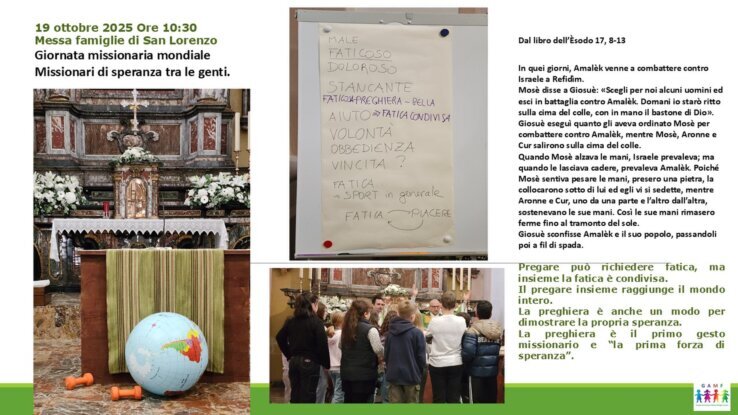 19 ottobre 2025 Ore 10:30
Messa famiglie di San Lorenzo
Giornata missionaria mondiale
Missionari di speranza tra le genti.
MALE
FATICOSO
DOLOROSO
STANCANTE
FATICA PREGHIERA - BELLA
AIUTO → FATICA CONDIVISA
VOLONTÀ
OBBEDIENZA
VINCITA ?
FATICA
→ SPORT in generale
FATICA PIACERE
Dal libro dell’Èsodo 17, 8-13
In quei giorni, Amalèk venne a combattere contro
Israele a Refidìm.
Mosè disse a Giosuè: «Scegli per noi alcuni uomini ed
esci in battaglia contro Amalèk. Domani io starò ritto
sulla cima del colle, con in mano il bastone di Dio».
Giosuè eseguì quanto gli aveva ordinato Mosè per
combattere contro Amalèk, mentre Mosè, Aronne e
Cur salirono sulla cima del colle.
Quando Mosè alzava le mani, Israele prevaleva; ma
quando le lasciava cadere, prevaleva Amalèk. Poiché
Mosè sentiva pesare le mani, presero una pietra, la
collocarono sotto di lui ed egli vi si sedette, mentre
Aronne e Cur, uno da una parte e l’altro dall’altra,
sostenevano le sue mani. Così le sue mani rimasero
ferme fino al tramonto del sole.
Giosuè sconfisse Amalèk e il suo popolo, passandoli
poi a fil di spada.
Pregare può richiedere fatica, ma
insieme la fatica è condivisa.
Il pregare insieme raggiunge il mondo
intero.
La preghiera è anche un modo per
dimostrare la propria speranza.
La preghiera è il primo gesto
missionario e “la prima forza di
speranza”.
G A M F